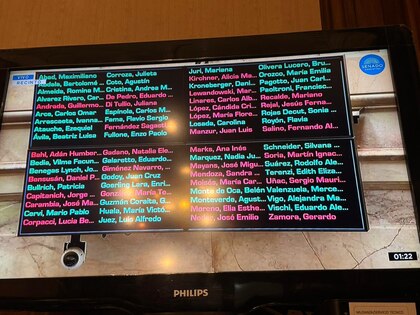 VIVO
RECINTO
SENADO
Abad, Maximiliano
Abdala, Bartolomé ...
Almeida, Romina M...
Alvarez Rivero, Car...
Andrada, Guillermo...
Arce, Carlos Omar
Arrascaeta, Ivanna...
Atauche, Ezequiel
Ávila, Beatriz Luisa
Corroza, Julieta
Coto, Agustín
Cristina, Andrea M...
De Pedro, Eduardo ...
Di Tullio, Juliana
Espínola, Carlos M...
Fama, Flavio Sergio
Fernández Sagasti...
Fullone, Enzo Paolo
Juri, Mariana
Kirchner, Alicia Ma...
Kroneberger, Dani...
Lewandowski, Mar...
Linares, Carlos Alb...
López, Cándida Cri...
López, María Flore...
Losada, Carolina
Manzur, Juan Luis
Olivera Lucero, Bru...
Orozco, María Emilia
Pagotto, Juan Carl...
Paoltroni, Francisc...
Recalde, Mariano
Rejal, Jesús Ferna...
Rojas Decut, Sonia ...
Royón, Flavia
Salino, Fernando Al...
Bahl, Adán Humber...
Bedia, Vilma Facun...
Benegas Lynch, Jo...
Bensusán, Daniel P...
Bullrich, Patricia
Capitanich, Jorge ...
Carambia, José Ma...
Cervi, Mario Pablo
Corpacci, Lucía Be...
Gadano, Natalia Ele...
Galaretto, Eduardo...
Giménez Navarro, ...
Godoy, Juan Cruz
Goerling Lara, Enri...
González, María Te...
Guzmán Coraita, G...
Huala, María Victó...
Juez, Luis Alfredo
Marks, Ana Inés
Marquez, Nadia Ju...
Mayans, José Migu...
Mendoza, Sandra ...
Moisés, María Car...
Monte de Oca, Belén
Monteverde, Agust...
Moreno, Elia Esthe...
Neder, José Emilio
Schneider, Silvana ...
Soria, Martín Ignac...
Suárez, Rodolfo Ale...
Terenzi, Edith Eliza...
Uñac, Sergio Mauri...
Valenzuela, Merce...
Vigo, Alejandra Ma...
Vischi, Eduardo Ale...
Zamora, Gerardo
01:22
PHILIPS